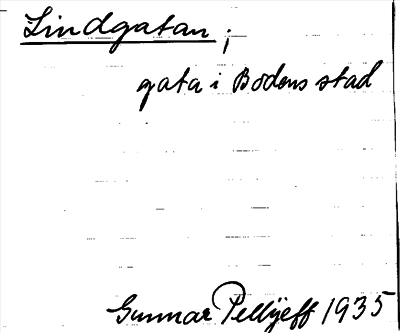 Lindgatan;
gata i Bodens stad
Gunnar Pellijeff 1935